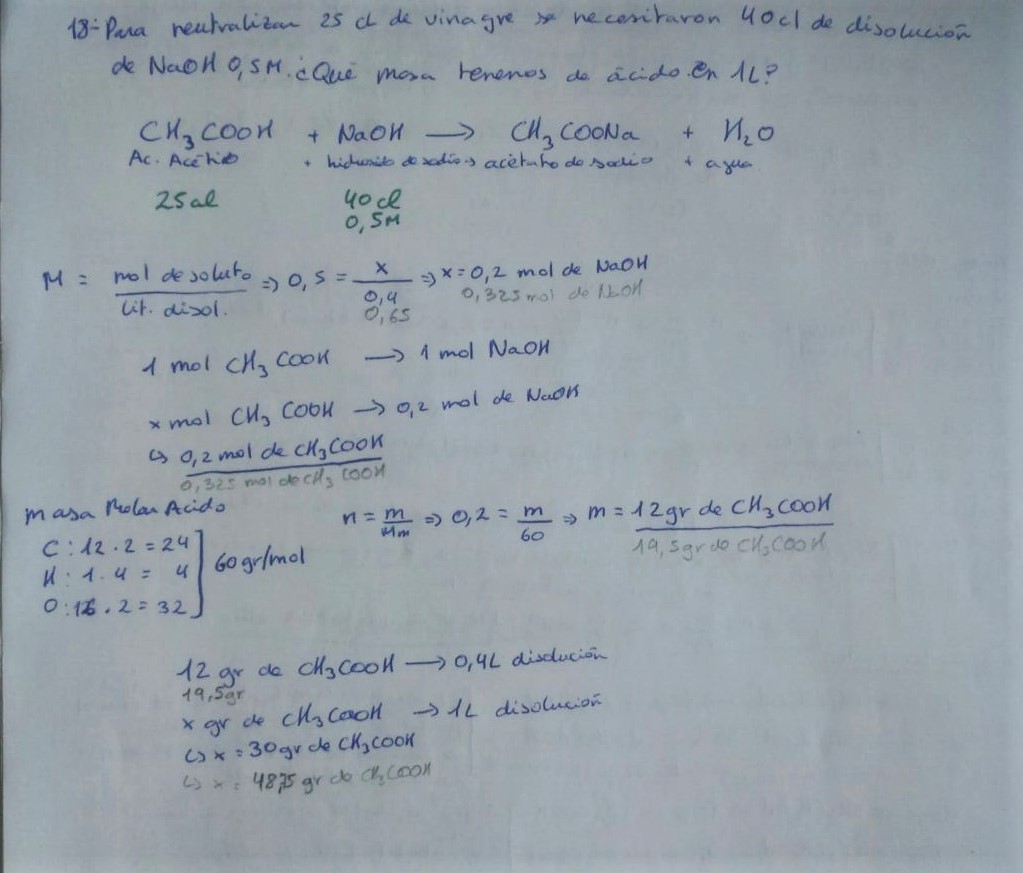 18- Para neutralizar 25 cl de vinagre se necesitaron 40cl de disolución
de NaOH 0,5M. ¿Qué masa tenemos de ácido en 1L?
CH₃COOH + NaOH → CH₃COONa + H₂O
Ac. Acético + hidróxido de sodio → acetato de sodio + agua
25cl 40cl
0,5M
M = mol de soluto / Lit. disol. ⇒ 0,5 = x / 0,4 ⇒ x = 0,2 mol de NaOH
0,65 0,325 mol de NaOH
1 mol CH₃COOH → 1 mol NaOH
x mol CH₃COOH → 0,2 mol de NaOH
↳ 0,2 mol de CH₃COOH
0,325 mol de CH₃COOH
masa Molar Acido
n = m / Mm ⇒ 0,2 = m / 60 ⇒ m = 12gr de CH₃COOH
19,5gr de CH₃COOH
C: 12 · 2 = 24
H: 1 · 4 = 4
60gr/mol
O: 16 · 2 = 32
12 gr de CH₃COOH → 0,4L disolución
19,5gr
x gr de CH₃COOH → 1L disolución
↳ x = 30gr de CH₃COOH
↳ x = 48,75 gr de CH₃COOH